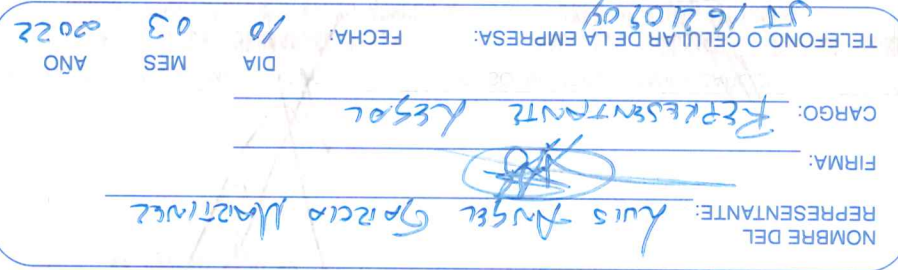 NOMBRE DEL
REPRESENTANTE: LUIS ANGEL GARCIA MARTINEZ
FIRMA:
CARGO: REPRESENTANTE LEGAL
TELEFONO O CELULAR DE LA EMPRESA: FECHA: 10 03 2022
DIA MES AÑO